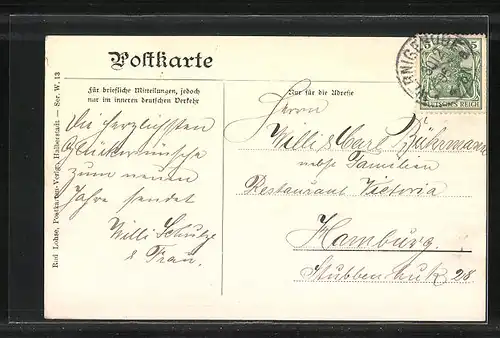 Postkarte
Für briefliche Mitteilungen, jedoch
nur im inneren deutschen Verkehr
Nur für die Adresse
Die herzlichsten
Glückwünsche
zum neuen
Jahre sendet
Willi Schulze
& Frau.
Herrn
Willi & Carl Bührmann
nebst Familien
Restaurant Victoria
Hamburg.
Stubbenhuk 28
DEUTSCHES REICH
5
Rud. Lohse, Postkarten-Verlag, Halberstadt — Ser. W. 13